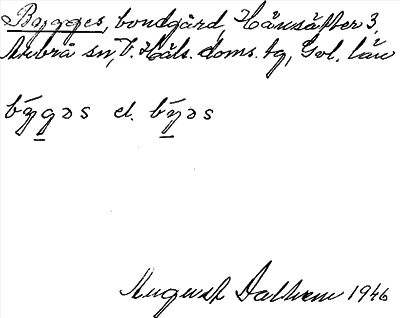 Bygges, bondgård, Hänsätter 3,
Arbrå sn, V. Häls. doms. tg, Gvl. län
by̌gəs el. by̌əs
August Dalhem 1946